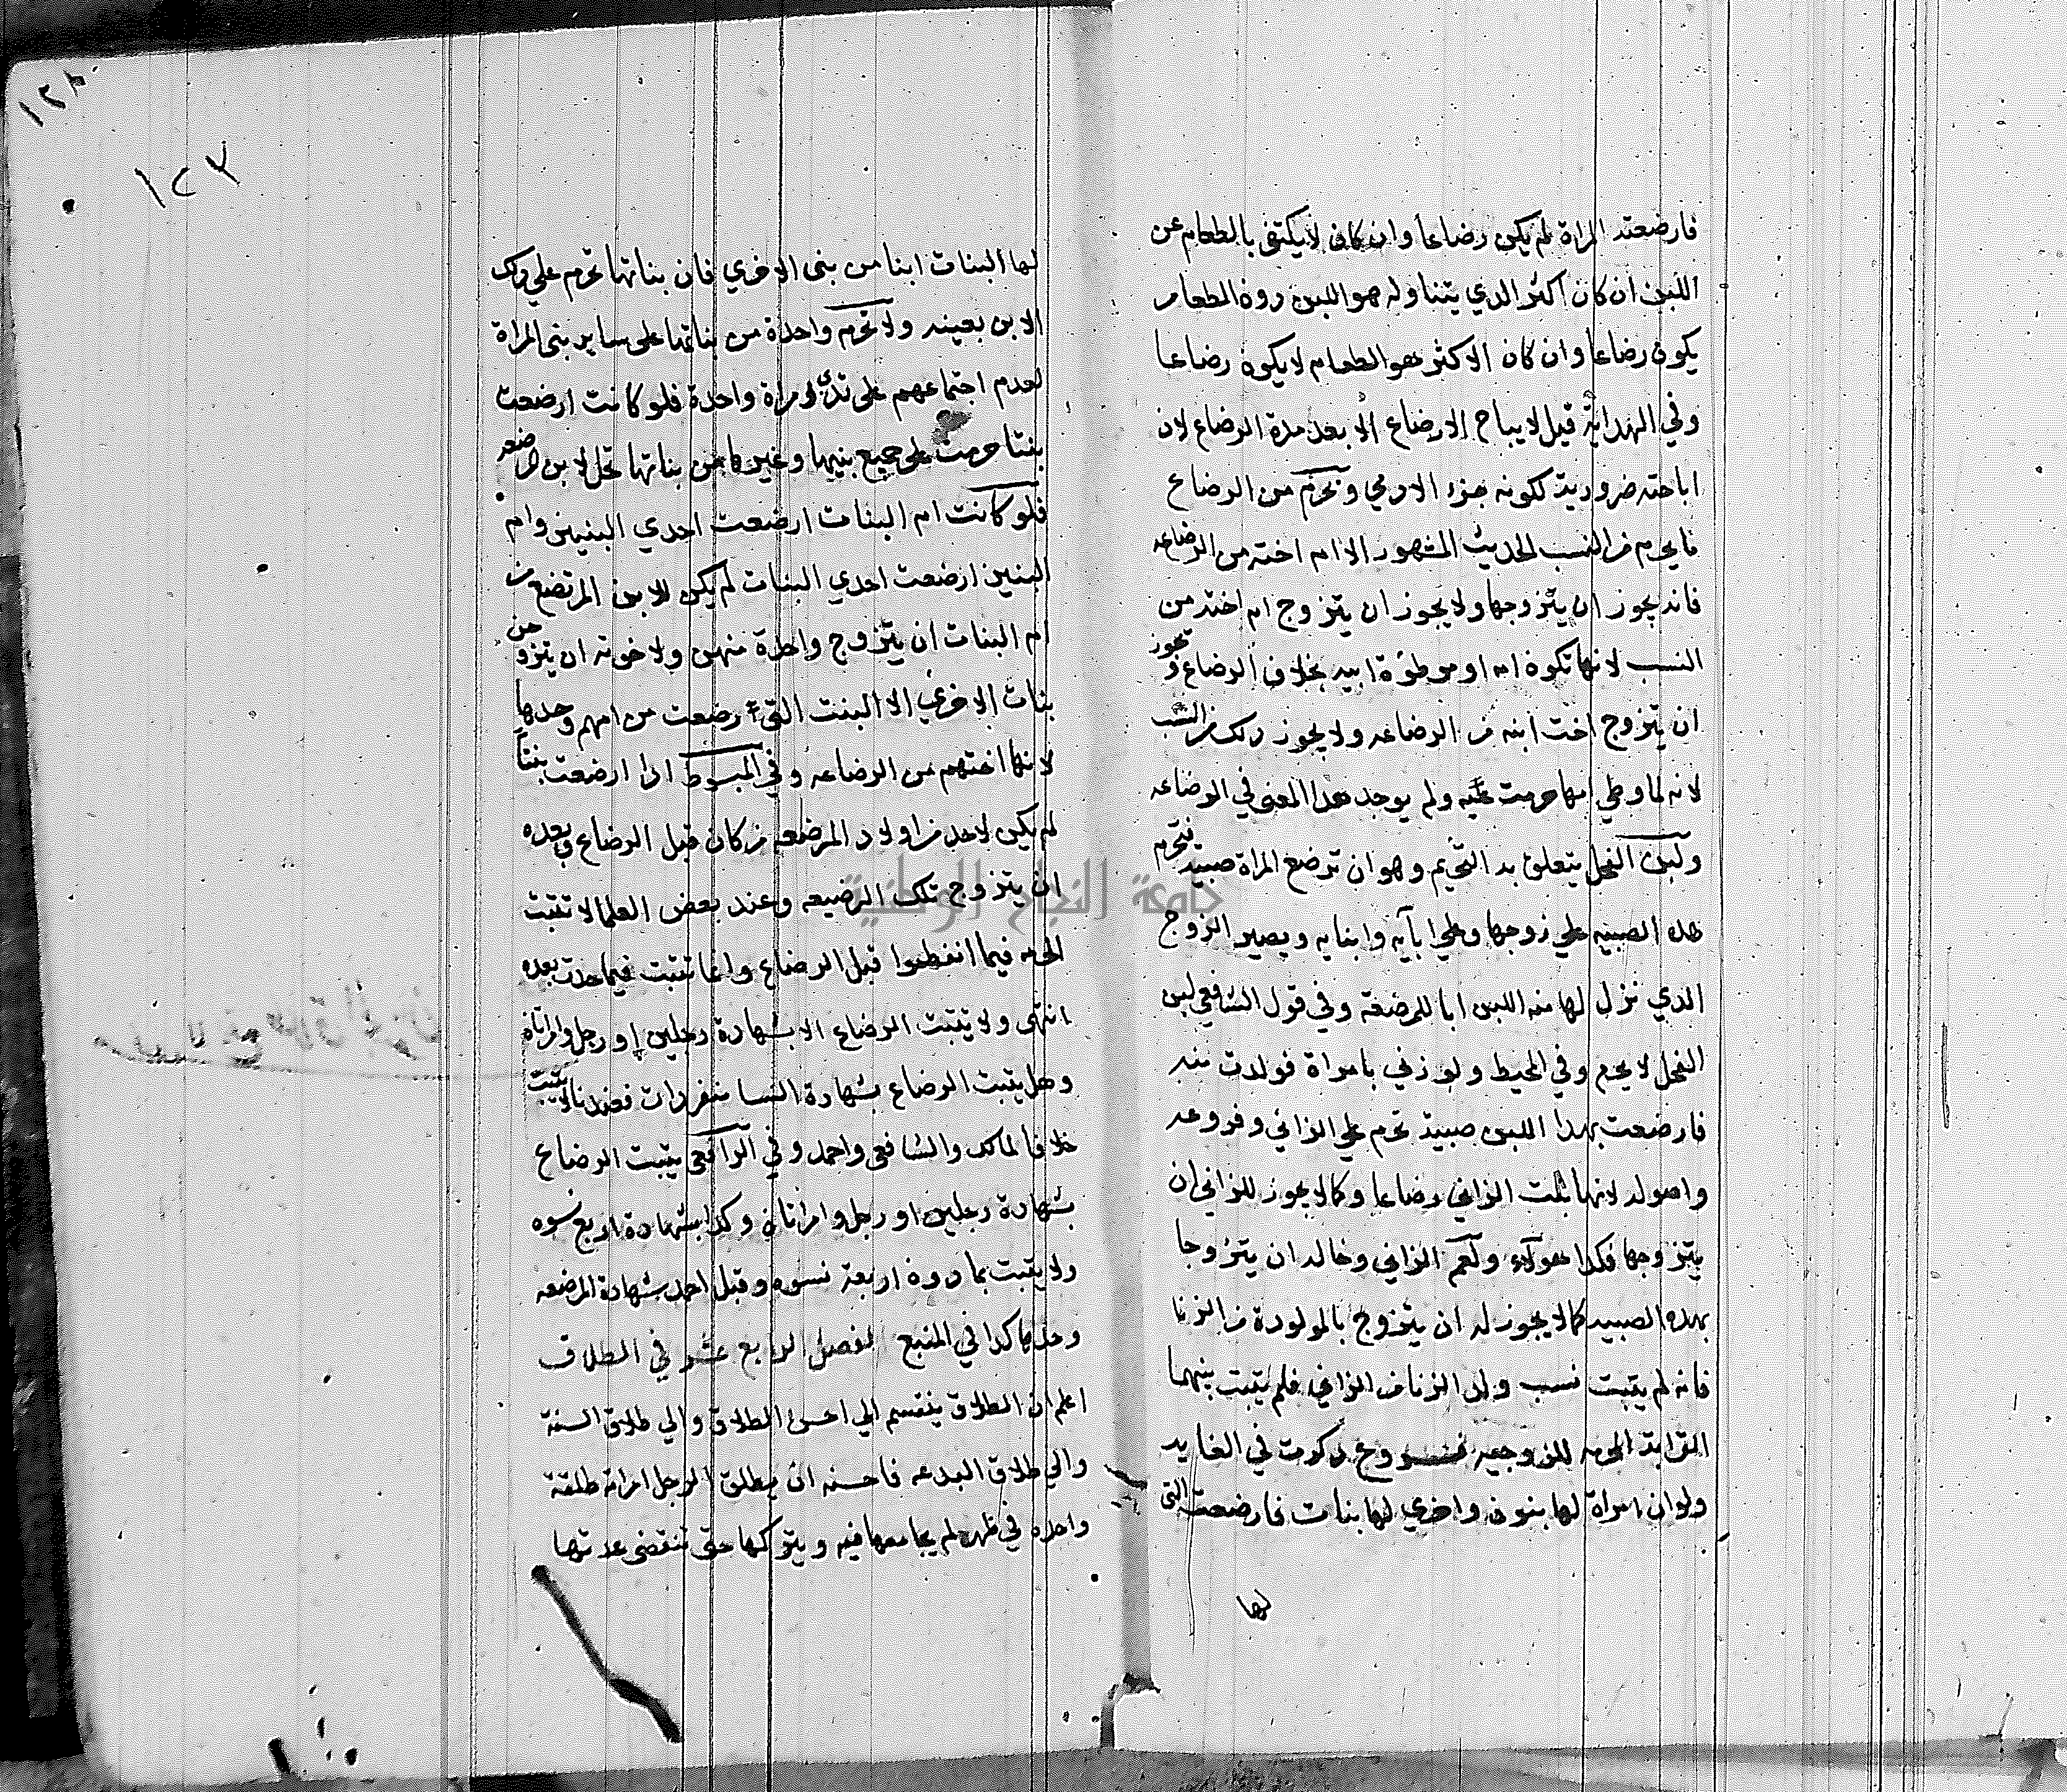 فارضعته المراة لم يكن رضاعا وان كان لا يكتفي بالطعام عن
اللبن ان كان اكثر الدي يتناوله هو اللبن دون الطعام
يكون رضاعا وان كان الاكثر هو الطعام لا يكون رضاعا
وفي الهداية قيل لا يباح الارضاع الا بعد مدة الرضاع لان
اباحته ضرورية لكونه جزء الادمي ويحرم من الرضاع
ما يحرم من النسب للحديث المشهور الا ام اخته من الرضاعه
فانه يجوز ان يتزوجها ولا يجوز ان يتزوج ام اخته من
النسب لانها تكون امه او موطؤة ابيه بخلاف الرضاع ويجوز
ان يتزوج اخت ابنه من الرضاعه ولا يجوز دلك من النسب
لانه لما وطي امها حرمت عليه ولم يوجد هدا المعنى في الرضاعه
ولبن الفحل يتعلق به التحريم وهو ان ترضع المراة صبية فتحرم
هده الصبيه على زوجها وعلى ابآيه وابنايه ويصير الزوج
الدي نزل لها منه اللبن ابا للمرضعة وفي قول الشافعي لبن
الفحل لا يحرم وفي المحيط ولو زني بامراة فولدت منه
فارضعت بهدا اللبن صبية تحرم على الزاني وفروعه
واصوله لانها بنت الزاني رضاعا وكما لا يجوز للزاني ان
يتزوجها فكدا هولاء ولعم الزاني وخاله ان يتزوجا
بهده الصبية كما لا يجوز له ان يتزوج بالمولودة من الزنا
فانه لم يثبت نسب ولد الزنا من الزاني فلم يثبت بينهما
القرابة المحرمه للزوجيه فروع دكرت في الغايه
ولو ان امراة لها بنون واخري لها بنات فارضعت التي
لها
١٢٣
١٢٧
لها البنات ابنا من بني الاخري فان بناتها تحرم علي دلك
الابن بعينه ولا تحرم واحدة من بناتها على ساير بني المراة
لعدم اجتماعهم على ثدي امراة واحدة فلو كانت ارضعت
بنتا حرمت على جميع بنيها وغيرها من بناتها تحل لابن المرضعه
فلو كانت ام البنات ارضعت احدي البنين وام
البنين ارضعت احدي البنات لم يكن للابن المرتضع من
ام البنات ان يتزوج واحدة منهن ولاخوته ان يتزوجن
بنات الاخري الا البنت التي ارضعت من امهم وحدها
لانها اختهم من الرضاعه وفي المبسوط ادا ارضعت بنتا
لم يكن لاحد من اولاد المرضعه من كان قبل الرضاع وبعده
ان يتزوج تلك الرضيعه وعند بعض العلما لا تثبت
الحرمه فيما انفطموا قبل الرضاع وانما تثبت فيما حدث بعده
انتهى ولا يثبت الرضاع الا بشهادة رجلين او رجل وامراتان
وهل يثبت الرضاع بشهادة النسا منفردات فعندنا لا يثبت
خلافا لمالك والشافعي واحمد وفي الرافعي يثبت الرضاع
بشهادة رجلين او رجل وامراتان وكدا بشهادة اربع نسوه
ولا يثبت بما دون اربعة نسوه وقبل احمد شهادة المرضعه
وحدها كدا في المنبع الفصل الرابع عشر في الطلاق
اعلم ان الطلاق ينقسم الي احسن الطلاق والي طلاق السنة
والي طلاق البدعه فاحسنه ان يطلق الرجل امراته طلقة
واحدة في طهر لم يجامعها فيه ويتركها حتى تنقضي عدتها
جامعة النجاح الوطنية